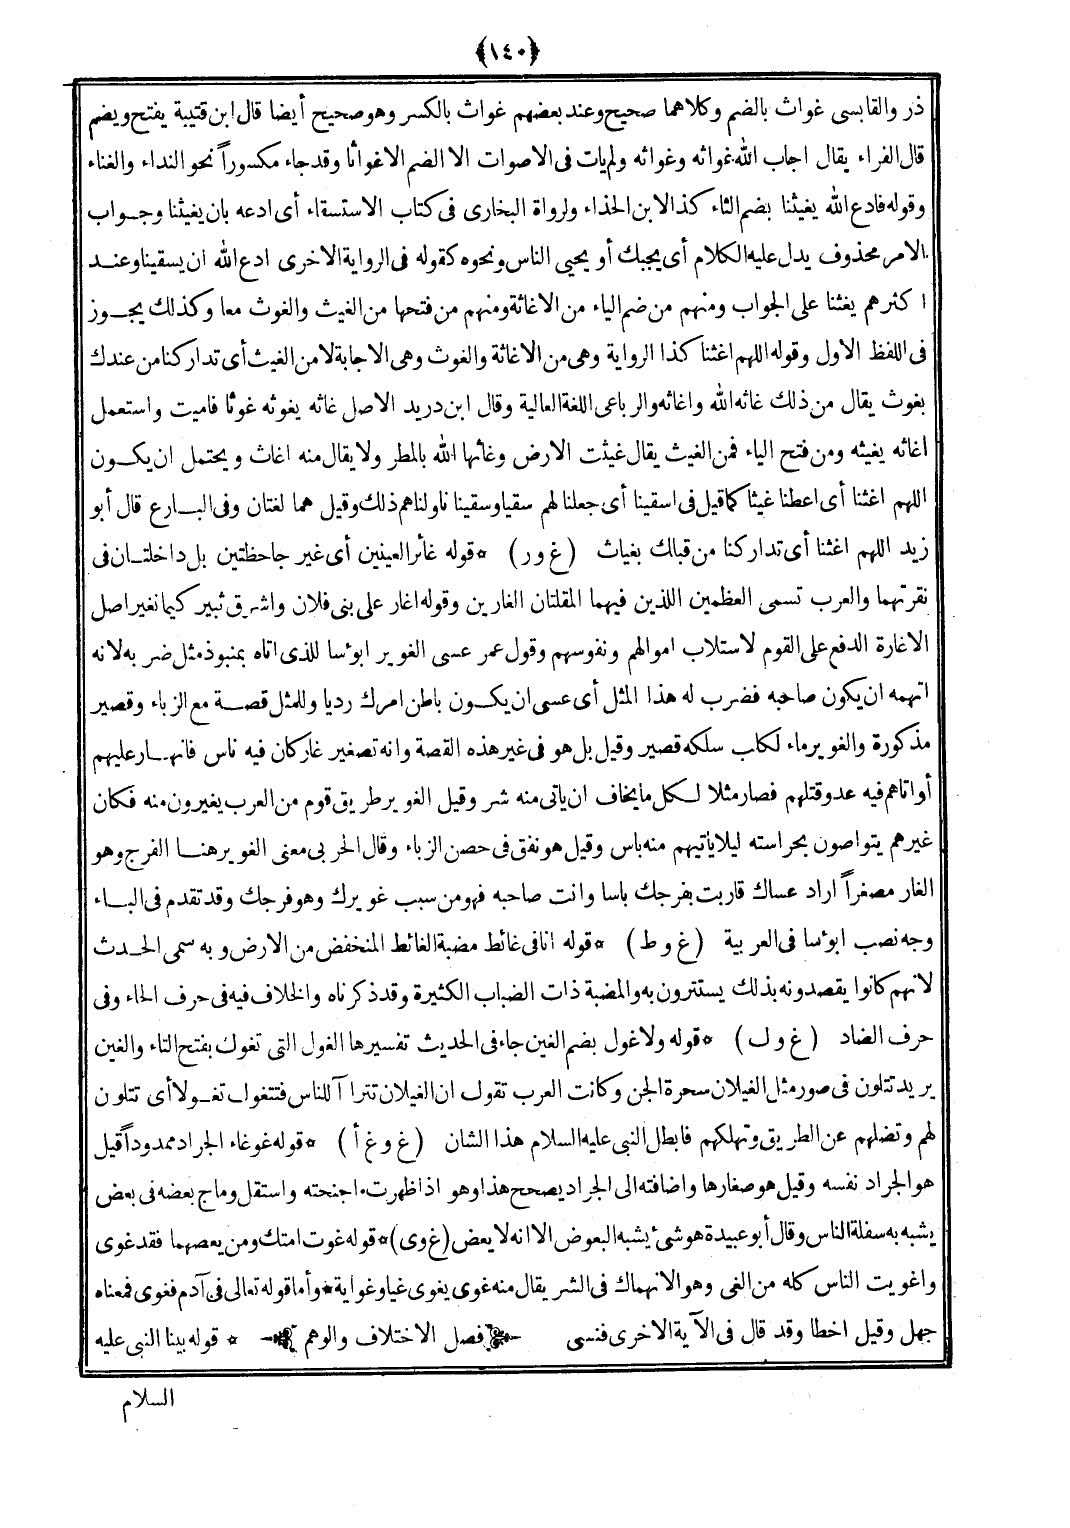 ﴿١٤٠﴾
ذر والقابسى غواث بالضم وكلاهما صحيح وعند بعضهم غواث بالكسر وهو صحيح أيضا قال ابن قتيبة يفتح ويضم
قال الفراء يقال اجاب الله غوائه وغوائه ولم يات فى الاصوات الا الضم الا غواثا وقد جاء مكسوراً نحو النداء والغناء
وقوله فادع الله يغيثنا بضم الثاء كذا لابن الحذاء ولرواة البخارى فى كتاب الاستسقاء أى ادعه بان يغيثنا وجواب
الامر محذوف يدل عليه الكلام أى يجبك أو يحيى الناس ونحوه كقوله فى الرواية الاخرى ادع الله ان يسقينا وعند
اكثرهم يغثنا على الجواب ومنهم من ضم الياء من الاغاثة ومنهم من فتحها من الغيث والغوث معا وكذلك يجوز
فى اللفظ الاول وقوله اللهم اغثنا كذا الرواية وهى من الاغاثة والغوث وهى الاجابة لا من الغيث أى تداركنا من عندك
بغوث يقال من ذلك غاثه الله واغاثه والرباعى اللغة العالية وقال ابن دريد الاصل غاثه يغوثه غوثا فاميت واستعمل
اغاثه يغيثه ومن فتح الياء فمن الغيث يقال غيثت الارض وغاثها الله بالمطر ولا يقال منه اغاث ويحتمل ان يكون
اللهم اغثنا أى اعطنا غيثا كما قيل فى اسقينا أى جعلنا لهم سقيا وسقينا ناولناهم ذلك وقيل هما لغتان وفى البارع قال أبو
زيد اللهم اغثنا أى تداركنا من قبلك بغياث (غ ور) * قوله غائر العينين أى غير جاحظتين بل داخلتان فى
نقرتهما والعرب تسمى العظمين اللذين فيهما المقلتان الغارين وقوله اغار على بنى فلان واشرق ثبير كيما نغير اصل
الاغارة الدفع على القوم لاستلاب اموالهم ونفوسهم وقول عمر عسى الغوير ابوٴسا للذى اتاه بمنبوذ مثل ضربه لانه
اتهمه ان يكون صاحبه فضرب له هذا المثل أى عسى ان يكون باطن امرك رديا وللمثل قصة مع الزباء وقصير
مذكورة والغوير ماء لكلب سلكه قصير وقيل بل هو فى غير هذه القصة وانه تصغير غار كان فيه ناس فانهار عليهم
أو اتاهم فيه عدو قتلهم فصار مثلا لكل ما يخاف ان ياتى منه شر وقيل الغوير طريق قوم من العرب يغيرون منه فكان
غيرهم يتواصون بحراسته ليلا ياتيهم منه باس وقيل هو نفق فى حصن الزباء وقال الحربى معنى الغوير هنا الفرج وهو
الغار مصغراً اراد عساك قاربت بفرجك باسا وانت صاحبه فهو من سبب غويرك وهو فرجك وقد تقدم فى الباء
وجه نصب ابوٴسا فى العربية (غ وط) * قوله انا فى غائط مضبة الغائط المنخفض من الارض وبه سمى الحدث
لانهم كانوا يقصدونه بذلك يستترون به والمضبة ذات الضباب الكثيرة وقد ذكرناه والخلاف فيه فى حرف الحاء وفى
حرف الضاد (غ ول) * قوله ولا غول بضم الغين جاء فى الحديث تفسيرها الغول التى تغول بفتح التاء والغين
يريد تتلون فى صور مثل الغيلان سحرة الجن وكانت العرب تقول ان الغيلان تتراآ للناس فتتغول تغولا أى تتلون
لهم وتضلهم عن الطريق وتهلكهم فابطل النبى عليه السلام هذا الشان (غ وغ أ) * قوله غوغاء الجراد ممدوداً قيل
هو الجراد نفسه وقيل هو صغارها واضافته الى الجراد يصحح هذا وهو اذا ظهرت اجنحته واستقل وماج بعضه فى بعض
يشبه به سفلة الناس وقال أبو عبيدة هو شىٴ يشبه البعوض الا انه لا يعض (غ وى) * قوله غوت امتك ومن يعصهما فقد غوى
واغويت الناس كله من الغى وهو الانهماك فى الشر يقال منه غوى يغوى غيا وغواية * وأما قوله تعالى فى آدم فغوى فمعناه
جهل وقيل اخطا وقد قال فى الآية الاخرى فنسى فصل الاختلاف والوهم * قوله بينا النبى عليه
السلام